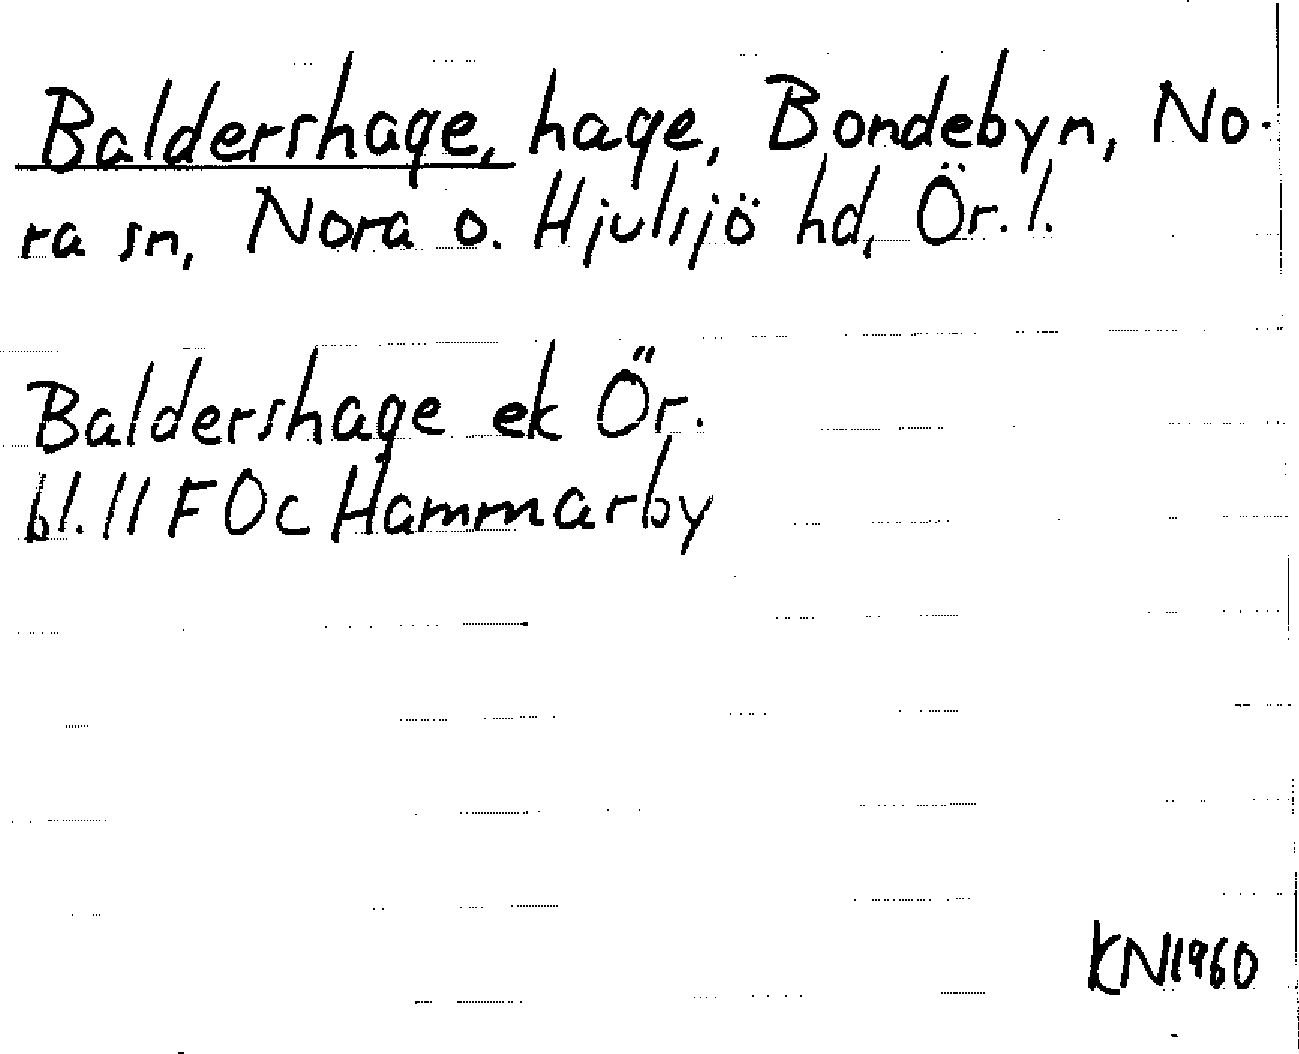 Baldershage, hage, Bondebyn, No-
ra sn, Nora o. Hjulsjö hd, Ör. l.
Baldershage ek Ör.
bl. 11 F 0 c Hammarby
KN1960